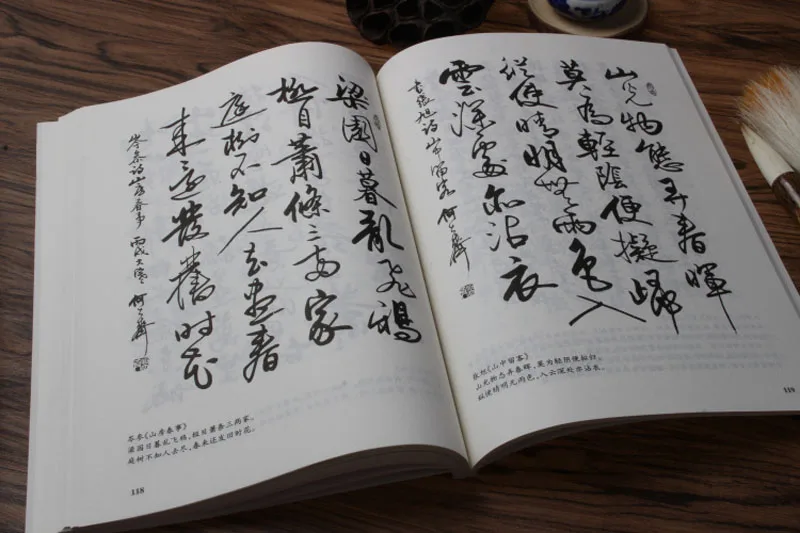 梁園日暮亂飛鴉
極目蕭條三兩家
庭樹不知人去盡春
來還發舊時花
岑參詩山房春事 丙戌大寒 何
岑参《山房春事》
梁园日暮乱飞鸦，极目萧条三两家。
庭树不知人去尽，春来还发旧时花。
118
山光物態弄春暉
莫為輕陰便擬歸
縱使晴明無雨色入
雲深處亦沾衣
書張旭詩山中留客 何
张旭《山中留客》
山光物态弄春晖，莫为轻阴便拟归。
纵使晴明无雨色，入云深处亦沾衣。
119